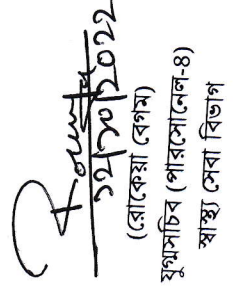 ১২/১০/২০২২
(রোকেয়া বেগম)
যুগ্মসচিব (পারসোনেল-৪)
স্বাস্থ্য সেবা বিভাগ